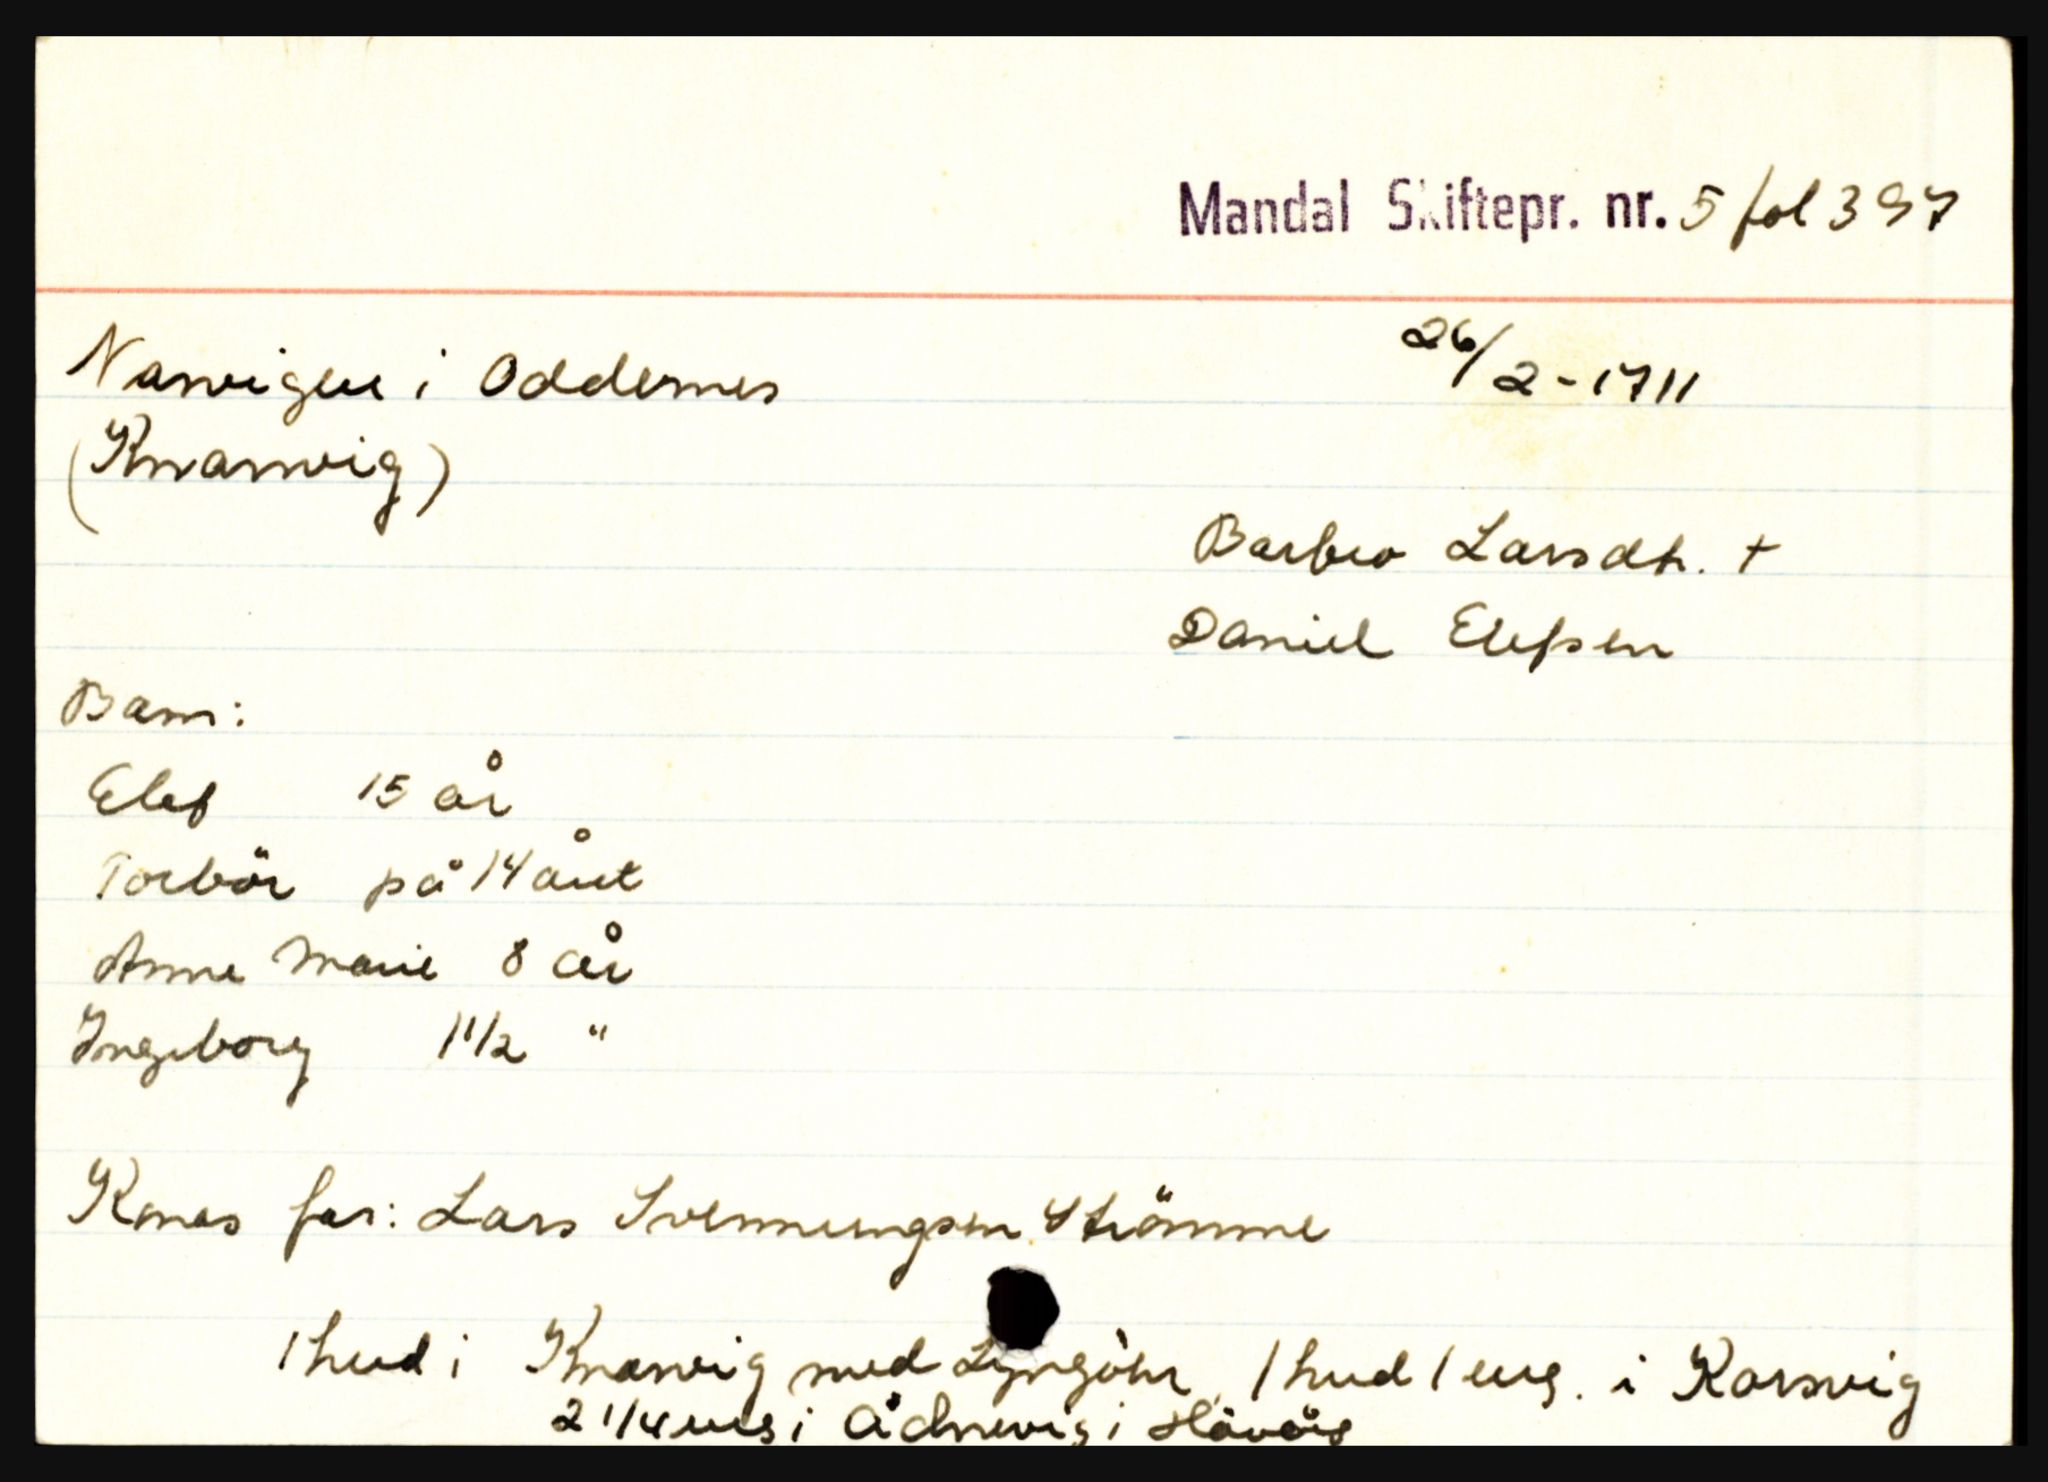 Mandal Skiftepr. nr. 5 fol 397
Narvigen i Oddernes
26/2-1711
(Knarrvig)
Barbro Larsdtr. +
Daniel Elefsen
Barn:
Elef 15 år
Torbör på 14 året
Anne Marie 8 år
Ingeborg 1 1/2 "
Konas far: Lars Svennungsen Strömme
1 hud i Knarvig med Lyngöhr, 1 hud 1 eng. i Korsvig
2 1/4 eng i Ådnevig i Hövåg